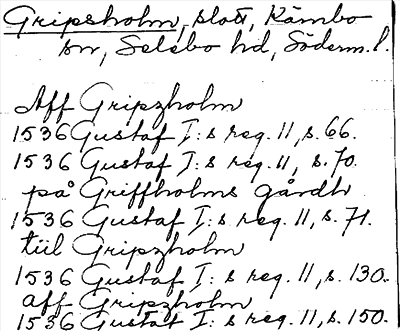 Gripsholm, slott, Kärnbo
sn, Selebo hd, Söderm. l.
Aff Gripzholm
1536 Gustaf I:s reg. 11, s. 66.
1536 Gustaf I:s reg. 11, s. 70.
på Griffholms gårdh
1536 Gustaf I:s reg. 11, s. 71.
tiil Gripzholm
1536 Gustaf I:s reg. 11, s. 130.
aff Gripzholm
1536 Gustaf I:s reg. 11, s. 150.